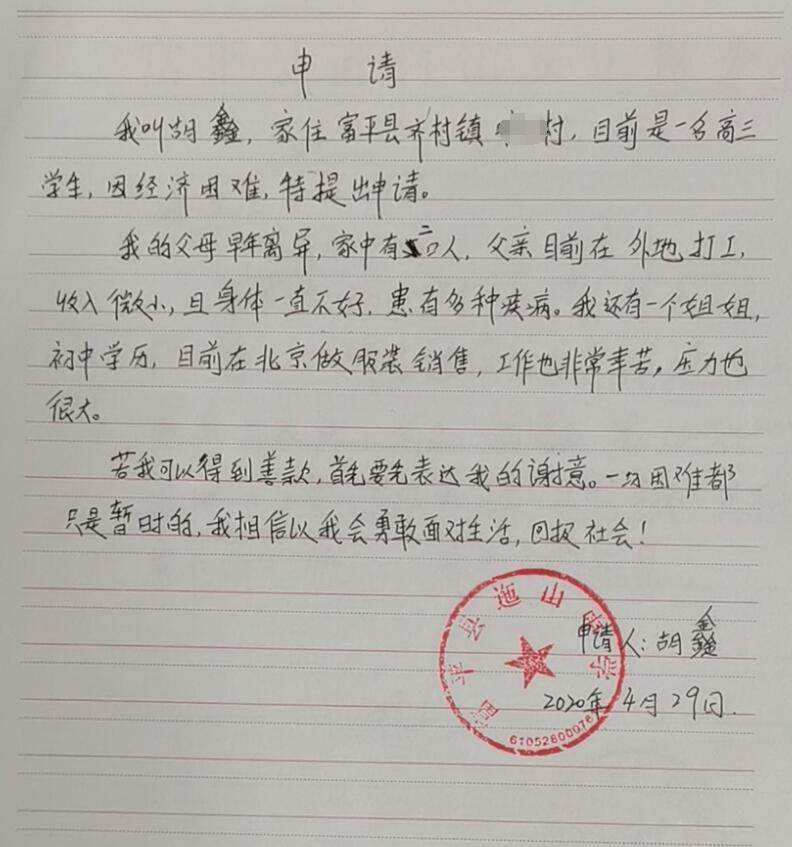 申 请
我叫胡鑫，家住富平县齐村镇 村，目前是一名高三
学生，因经济困难，特提出申请。
我的父母早年离异，家中有二口人，父亲目前在外地打工，
收入微小，且身体一直不好，患有多种疾病。我还有一个姐姐，
初中学历，目前在北京做服装销售，工作也非常辛苦，压力也
很大。
若我可以得到善款，首先要先表达我的谢意。一切困难都
只是暂时的，我相信以我会勇敢面对生活，回报社会！
富平县迤山中学
申请人：胡鑫
2020年4月29日.